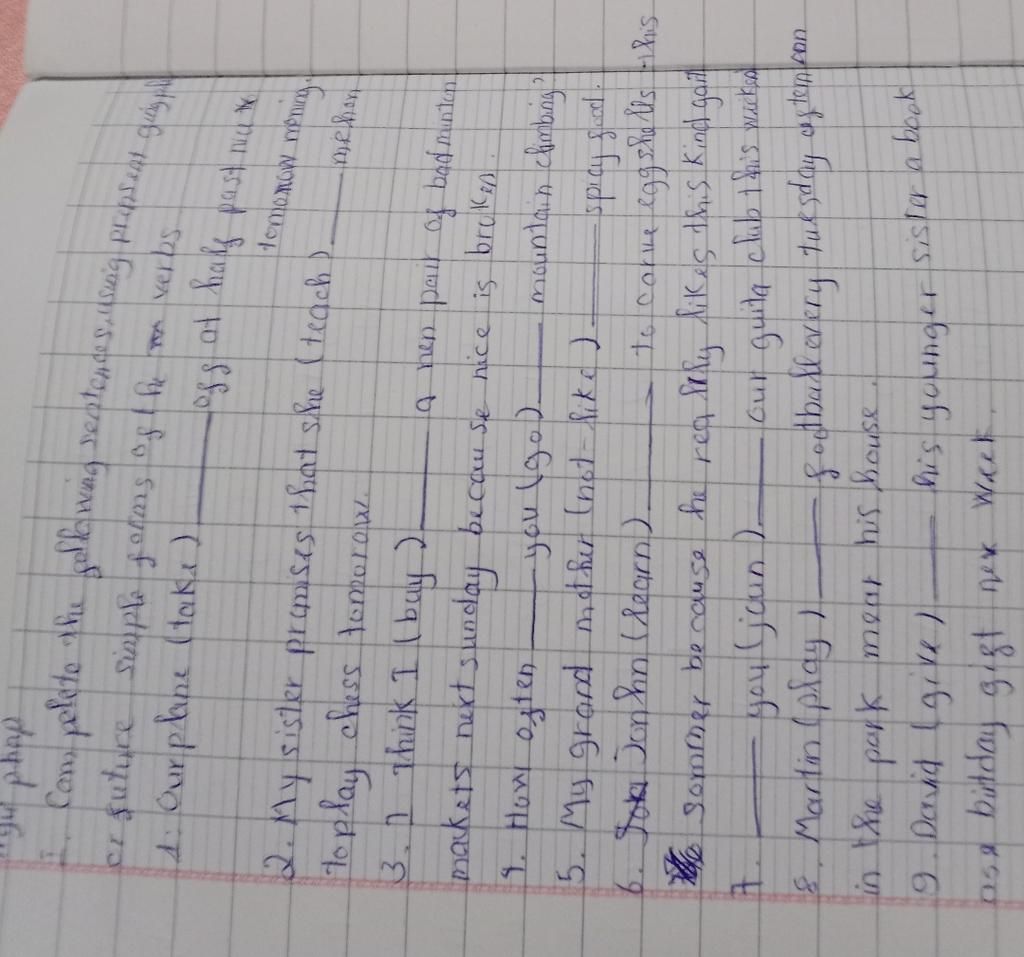 ngữ pháp
I. Complete the following sentences, using present simple
or future simple forms of the verbs
1. Our plane (take) ______ off at half past nine
tomorrow morning.
2. My sister promises that she (teach) ______ me how
to play chess tomorow.
3. I think I (buy) ______ a new pair of badminton
rackets next sunday because mice is broken.
4. How often ______ you (go) ______ mountain climbing?
5. My grand mother (not-like) ______ spicy food.
6. Jonhn (learn) ______ to carve eggshells this
sommer because he really likes this kind of art
7. ______ you (join) ______ our guita club this weekend
8. Martin (play) ______ football every tuesday afternoon
in the park near his house.
9. David (give) ______ his younger sister a book
as a bithday gift nex week.